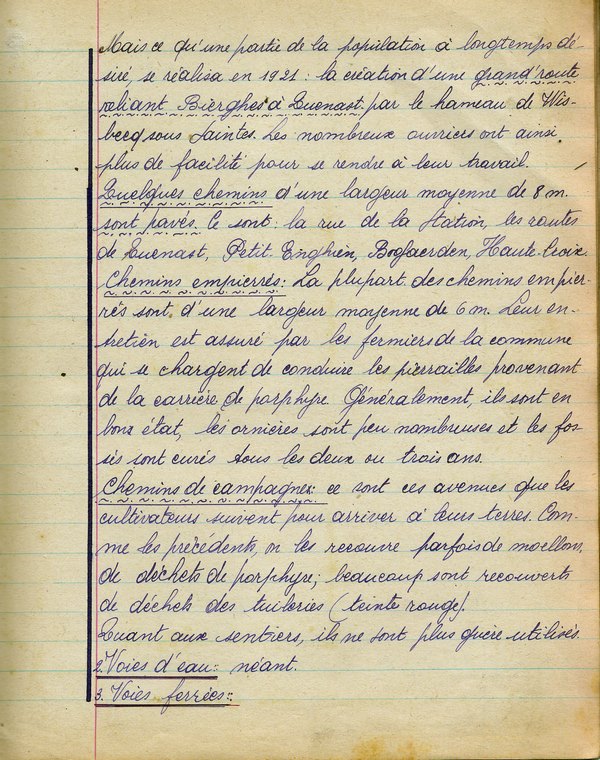 Mais ce qu'une partie de la population a longtemps dé-
siré, se réalisa en 1921 : la création d'une grand'route
reliant Bierghes à Quenast par le hameau de Wis-
becq sous Saintes. Les nombreux ouvriers ont ainsi
plus de facilité pour se rendre à leur travail.
Quelques chemins d'une largeur moyenne de 8 m.
sont pavés. Ce sont : la rue de la Station, les routes
de Quenast, Petit-Enghien, Bogaerden, Haute-Croix.
Chemins empierrés : La plupart des chemins empier-
rés sont d'une largeur moyenne de 6 m. Leur en-
tretien est assuré par les fermiers de la commune
qui se chargent de conduire les pierrailles provenant
de la carrière de porphyre. Généralement, ils sont en
bons état, les ornières sont peu nombreuses et les fos-
sés sont curés tous les deux ou trois ans.
Chemins de campagne : ce sont ces avenues que les
cultivateurs suivent pour arriver à leurs terres. Com-
me les précédents, on les recouvre parfois de moellons,
de déchets de porphyre ; beaucoup sont recouverts
de déchets des tuileries (teinte rouge).
Quant aux sentiers, ils ne sont plus guère utilisés.
2. Voies d'eau : néant.
3. Voies ferrées :